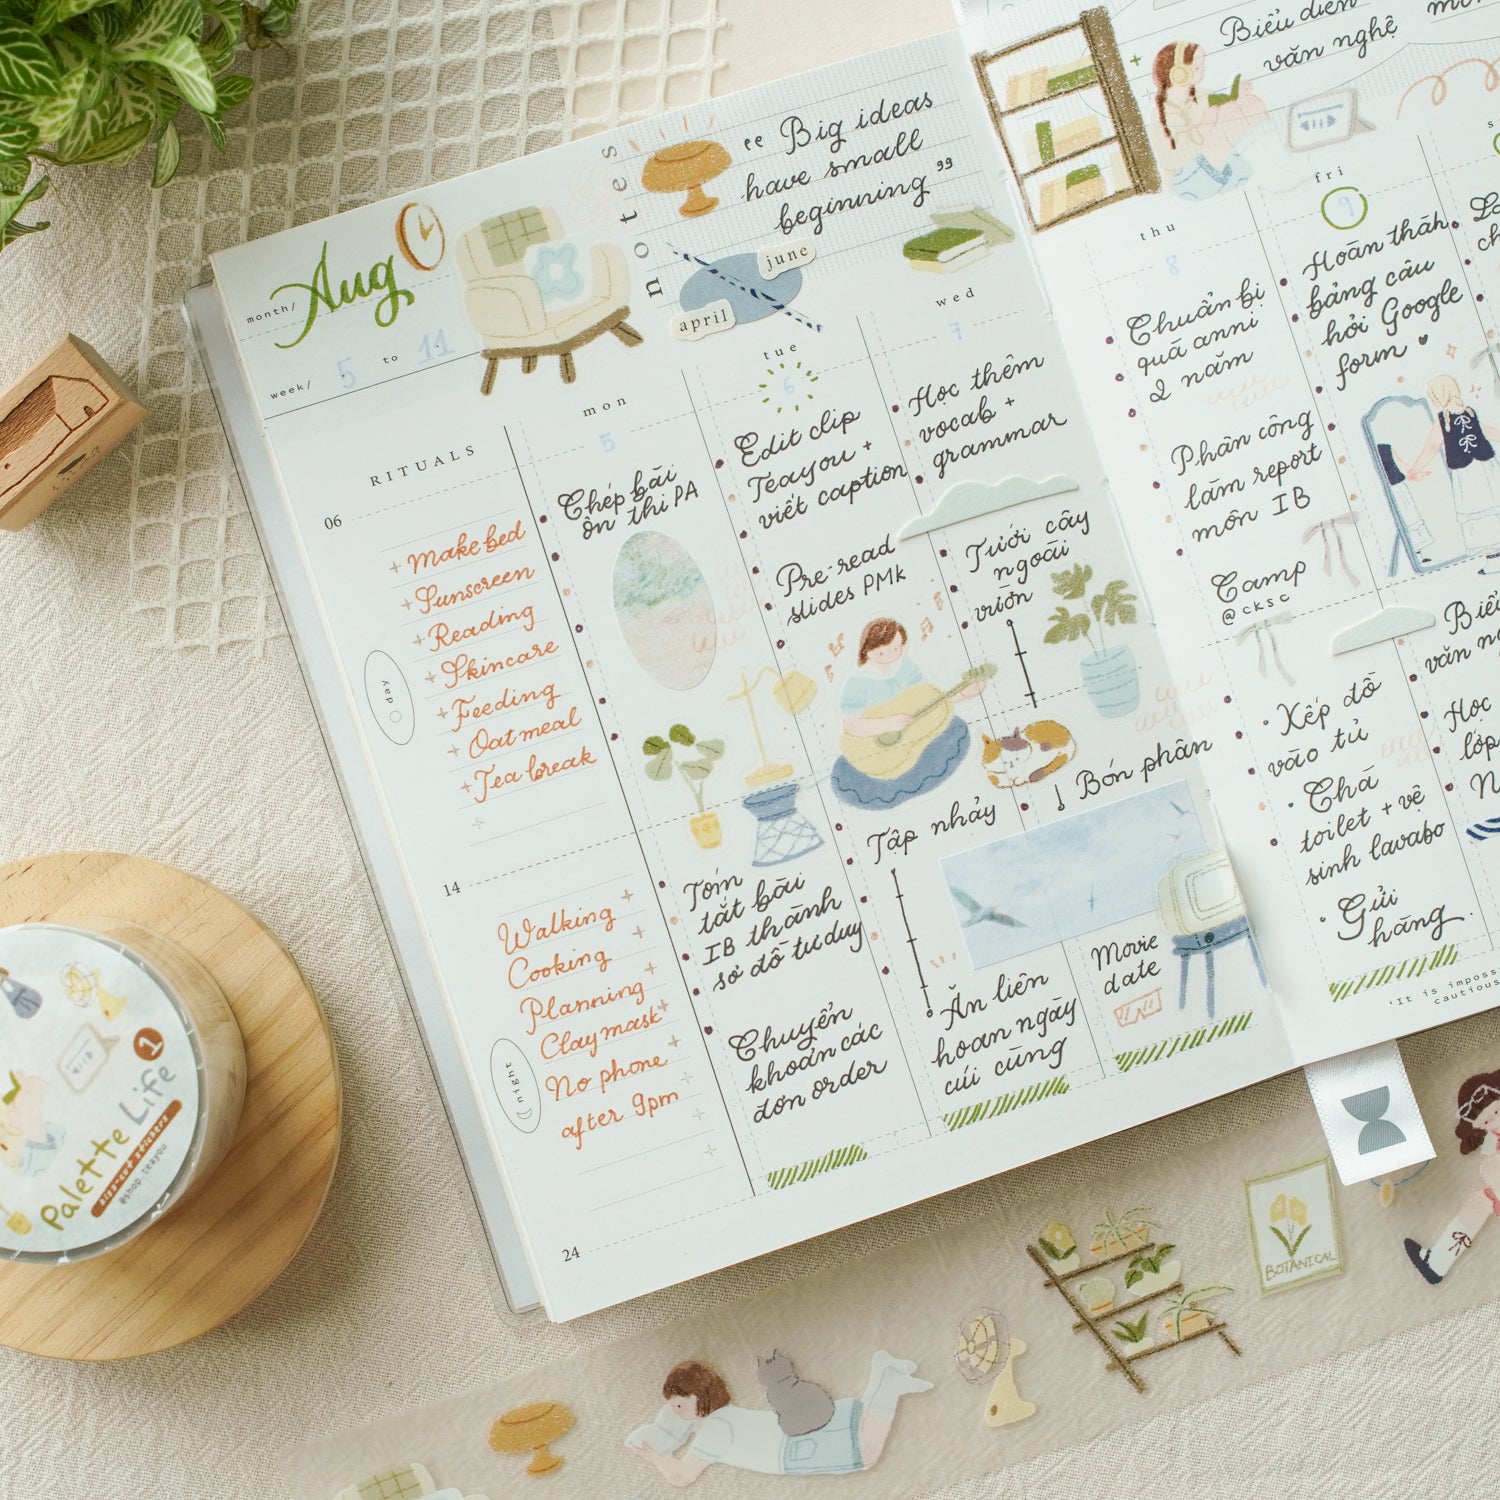 month/ Aug
week/ 5 to 11
notes
“ Big ideas
have small
beginning ”
june
april
RITUALS
06
+ Make bed
+ Sunscreen
+ Reading
+ Skincare
+ Feeding
+ Oatmeal
+ Tea break
day
14
Walking +
Cooking +
Planning +
Clay mask +
No phone +
after 9pm
night
24
mon
5
Chép bài
ôn thi PA
Tóm
tắt bài
IB thành
sơ đồ tư duy
Chuyển
khoản các
đơn order
tue
6
Edit clip
Teayou +
viết caption
Pre-read
slides PMk
Tập nhảy
Ăn liên
hoan ngày
cúi cùng
wed
7
Học thêm
vocab +
grammar
Tưới cây
ngoài
vườn
Bón phân
Movie
date
+ Biểu diễn
văn nghệ
thu
8
Chuẩn bị
quà anni
2 năm
Phân công
làm report
môn IB
Camp
@cksc
• Xếp đồ
vào tủ
• Chà
toilet + vệ
sinh lavabo
• Gửi
hàng.
fri
9
Hoàn thàh
bảng câu
hỏi Google
form
văn
Học
lớp
Palette Life
1
DIE-CUT STICKERS
@shop.teayou
BOTANICAL